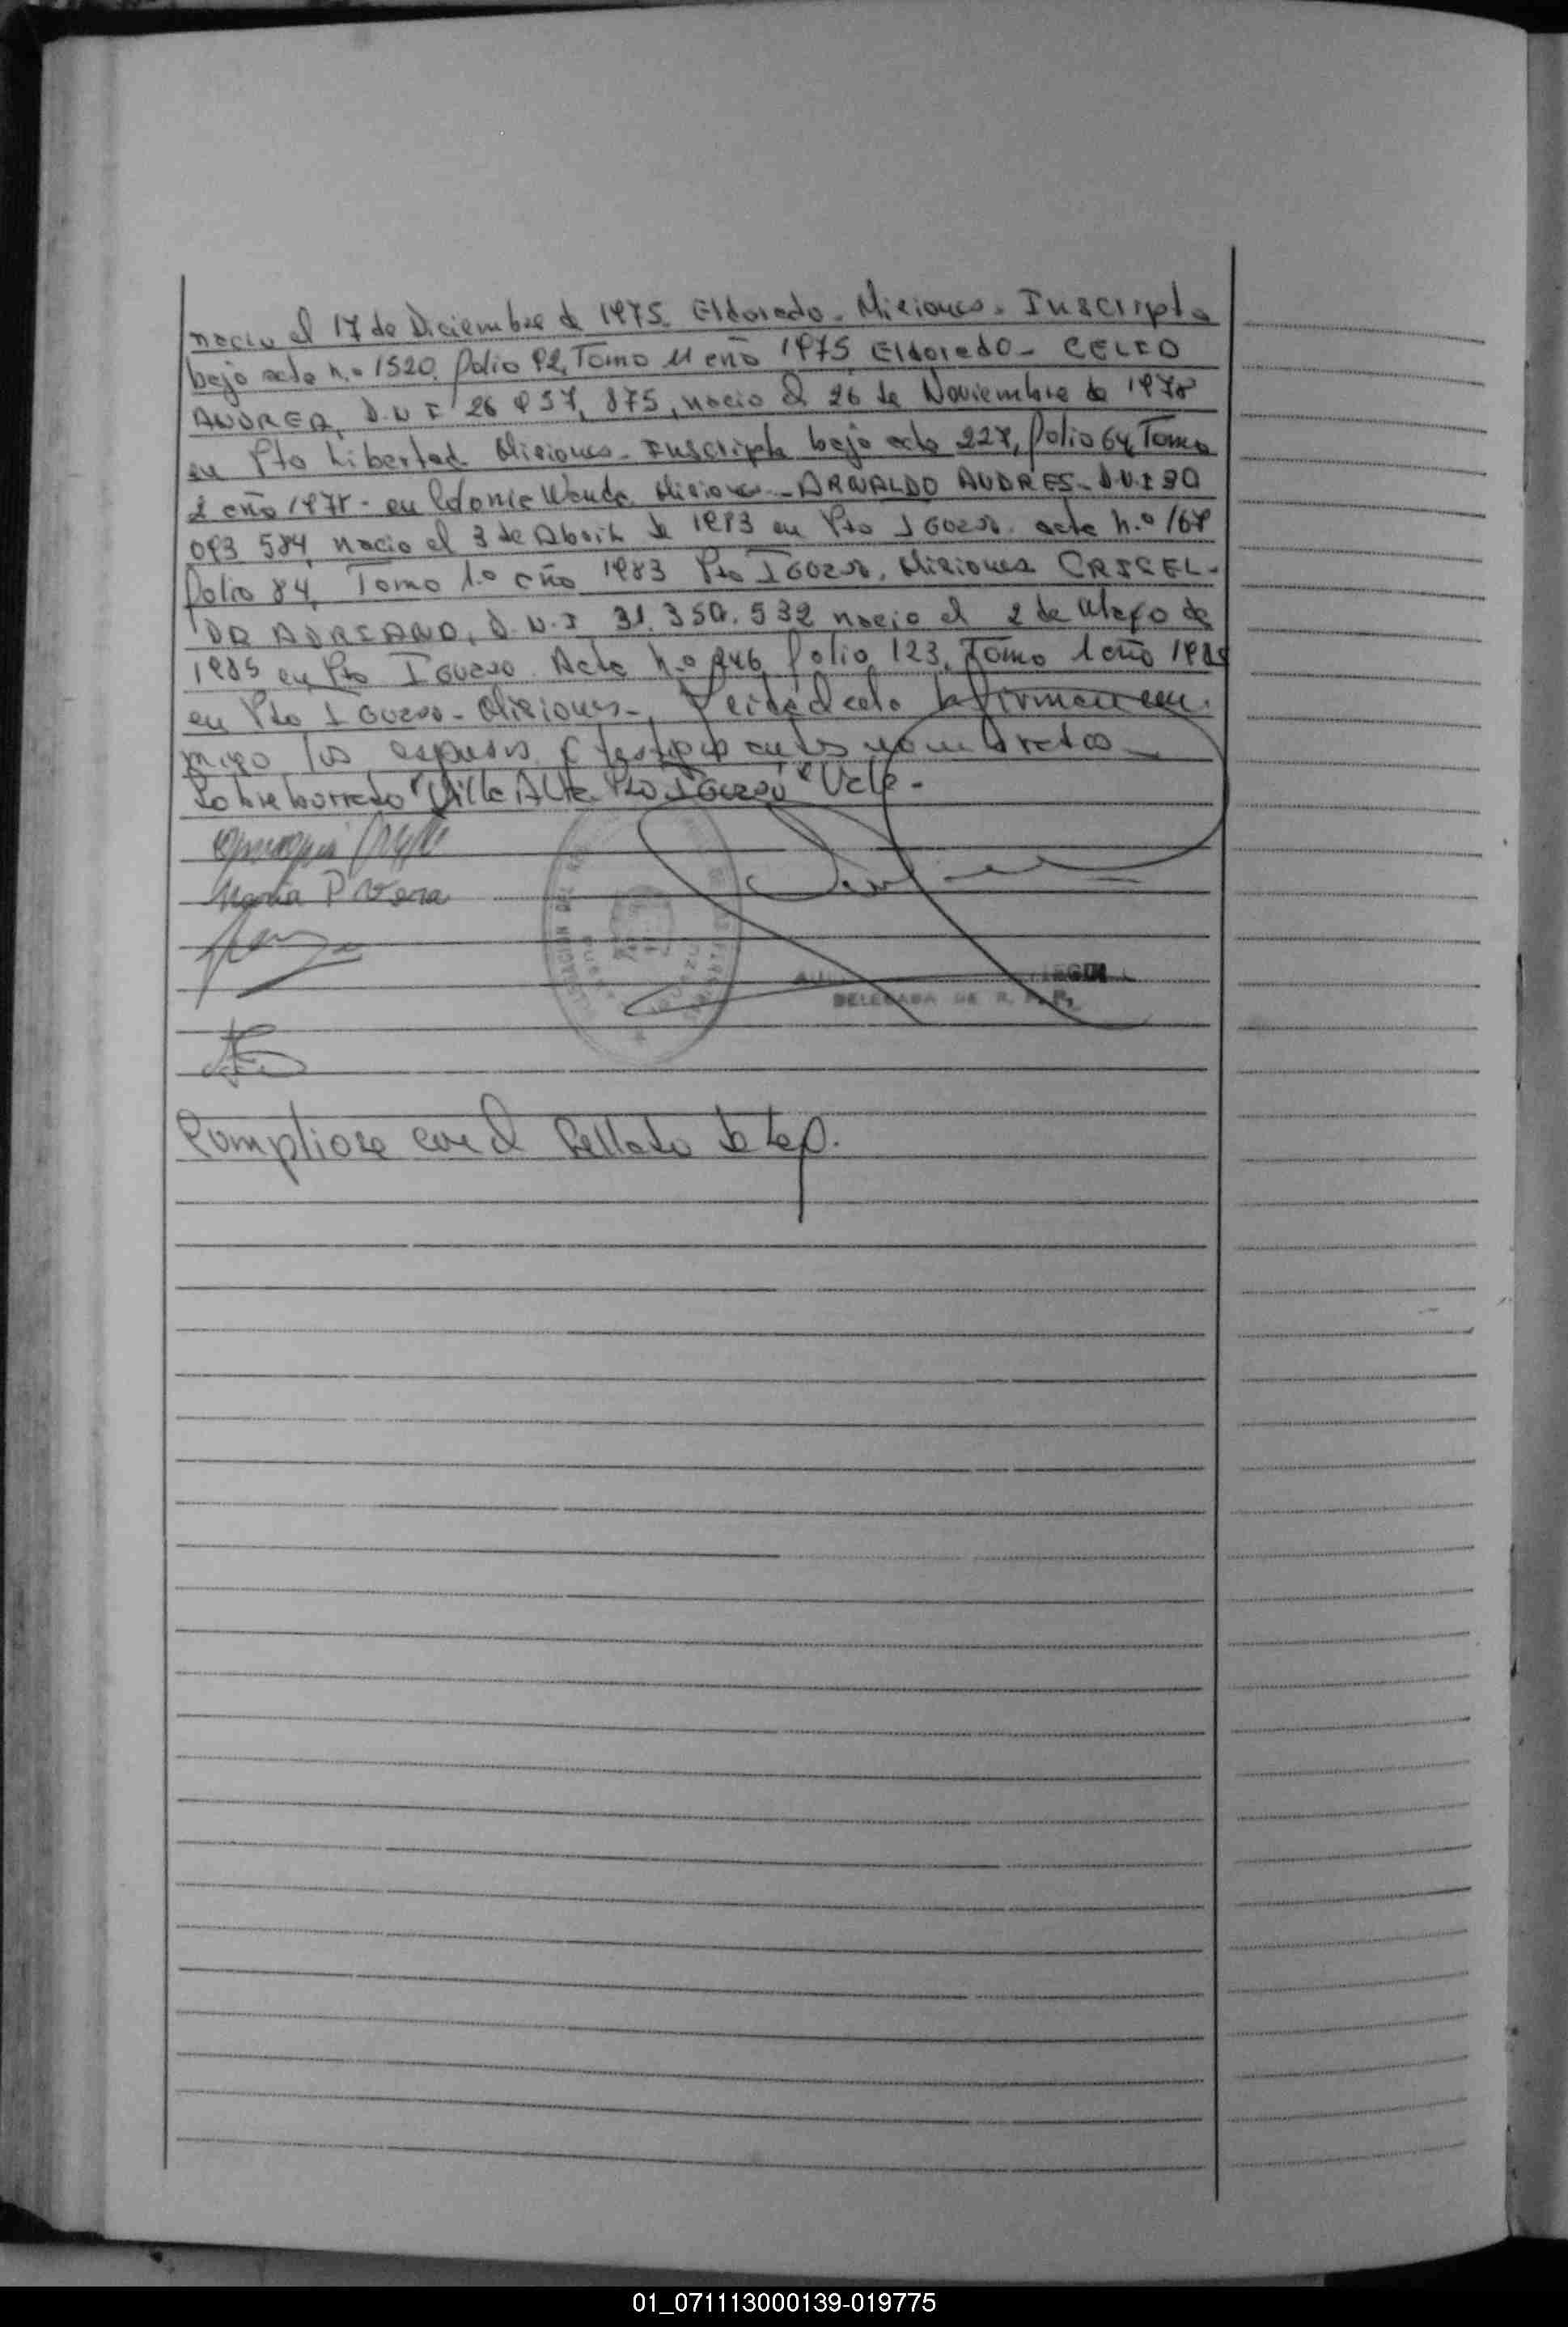 nacio el 17 de Diciembre de 1975. Eldorado. Misiones. Inscripta
bajo acta n.o 1520. folio 92, Tomo 11 año 1975 Eldorado - CELIO
ANDREA, D.N.I 26 957, 875, nacio el 26 de Noviembre de 1978
en Pto Libertad Misiones - Inscripta bajo acta 227, folio 64 Tomo
2 año 1978 - en Colonia Wanda. Misiones - ARNALDO ANDRES - D.N.I 30
093 584, nacio el 3 de Abril de 1983 en Pto IGUAZU. acta n.o 167
folio 84, Tomo 1.o año 1983 Pto IGUAZU, Misiones CRISEL-
DA ADRIANO, D.N.I 31. 350. 532 nacio el 2 de Mayo de
1985 en Pto Iguazu. Acta n.o 246, folio 123, Tomo 1 año 1985
en Pto IGUAZU - Misiones -, Leida el acta la firman con
migo los esposos y testigos antes nombrados -
Sobreborrado "Villa Alta Pto Iguazú" Vale -
Maria P Vera
DELEGADA DE R. P. P.
Cumpliose con el Sellado de Ley.
01_071113000139-019775